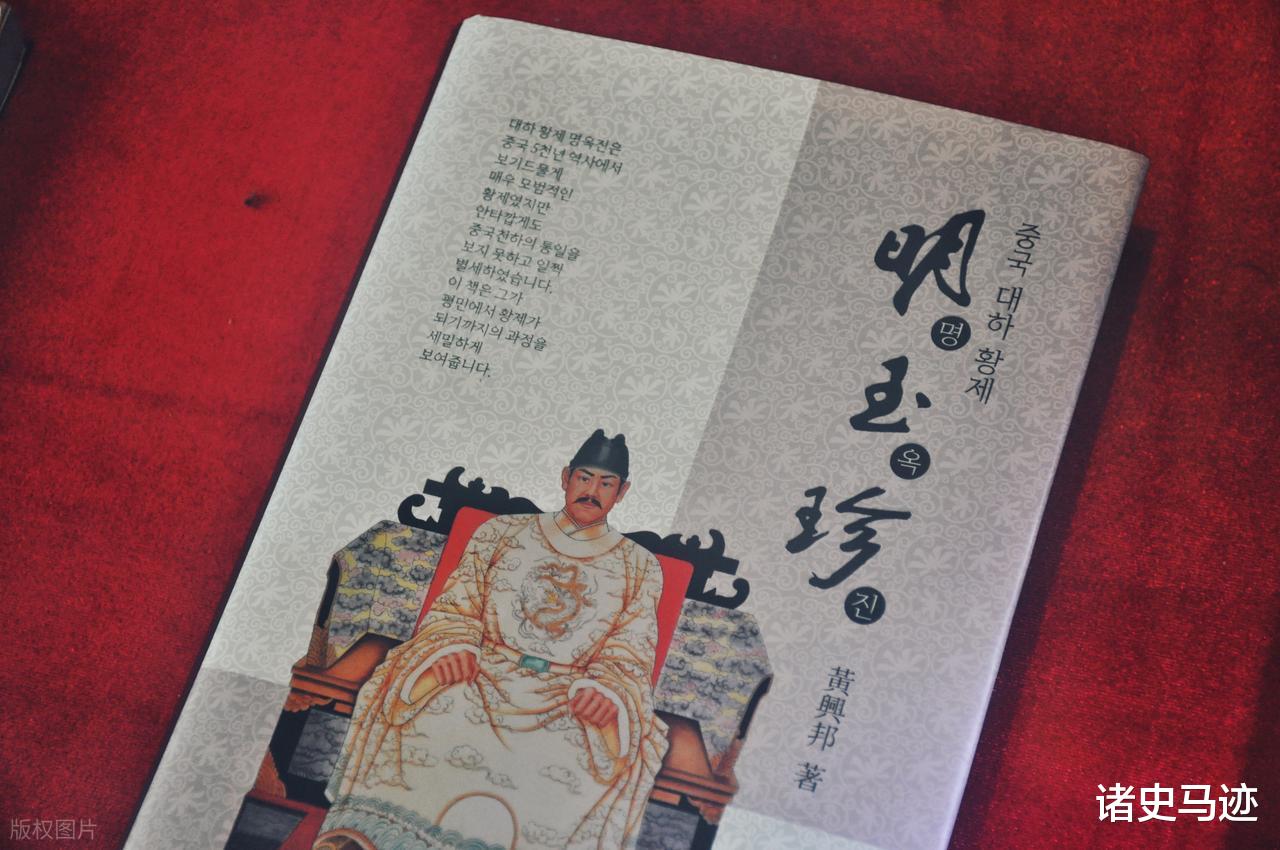 대하 황제 명옥진은
중국 5천년 역사에서
보기드물게
매우 모범적인
황제였지만
안타깝게도
중국천하의 통일을
보지 못하고 일찍
별세하였습니다.
이 책은 그가
평민에서 황제가
되기까지의 과정을
세밀하게
보여줍니다.
중국 대하 황제
明
명
玉
옥
珍
진
黃興邦 著
诸史马迹
版权图片